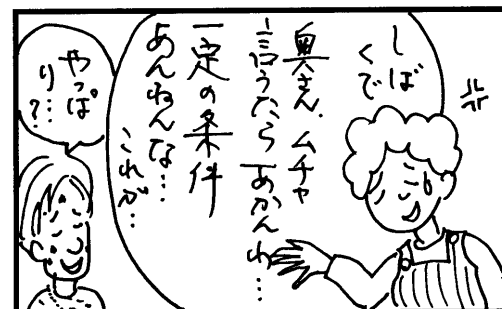 しば
くで
奥さん、ムチャ
言うたらあかんわ…
一定の条件
あんねんな…
これが…
やっぱ
り?…